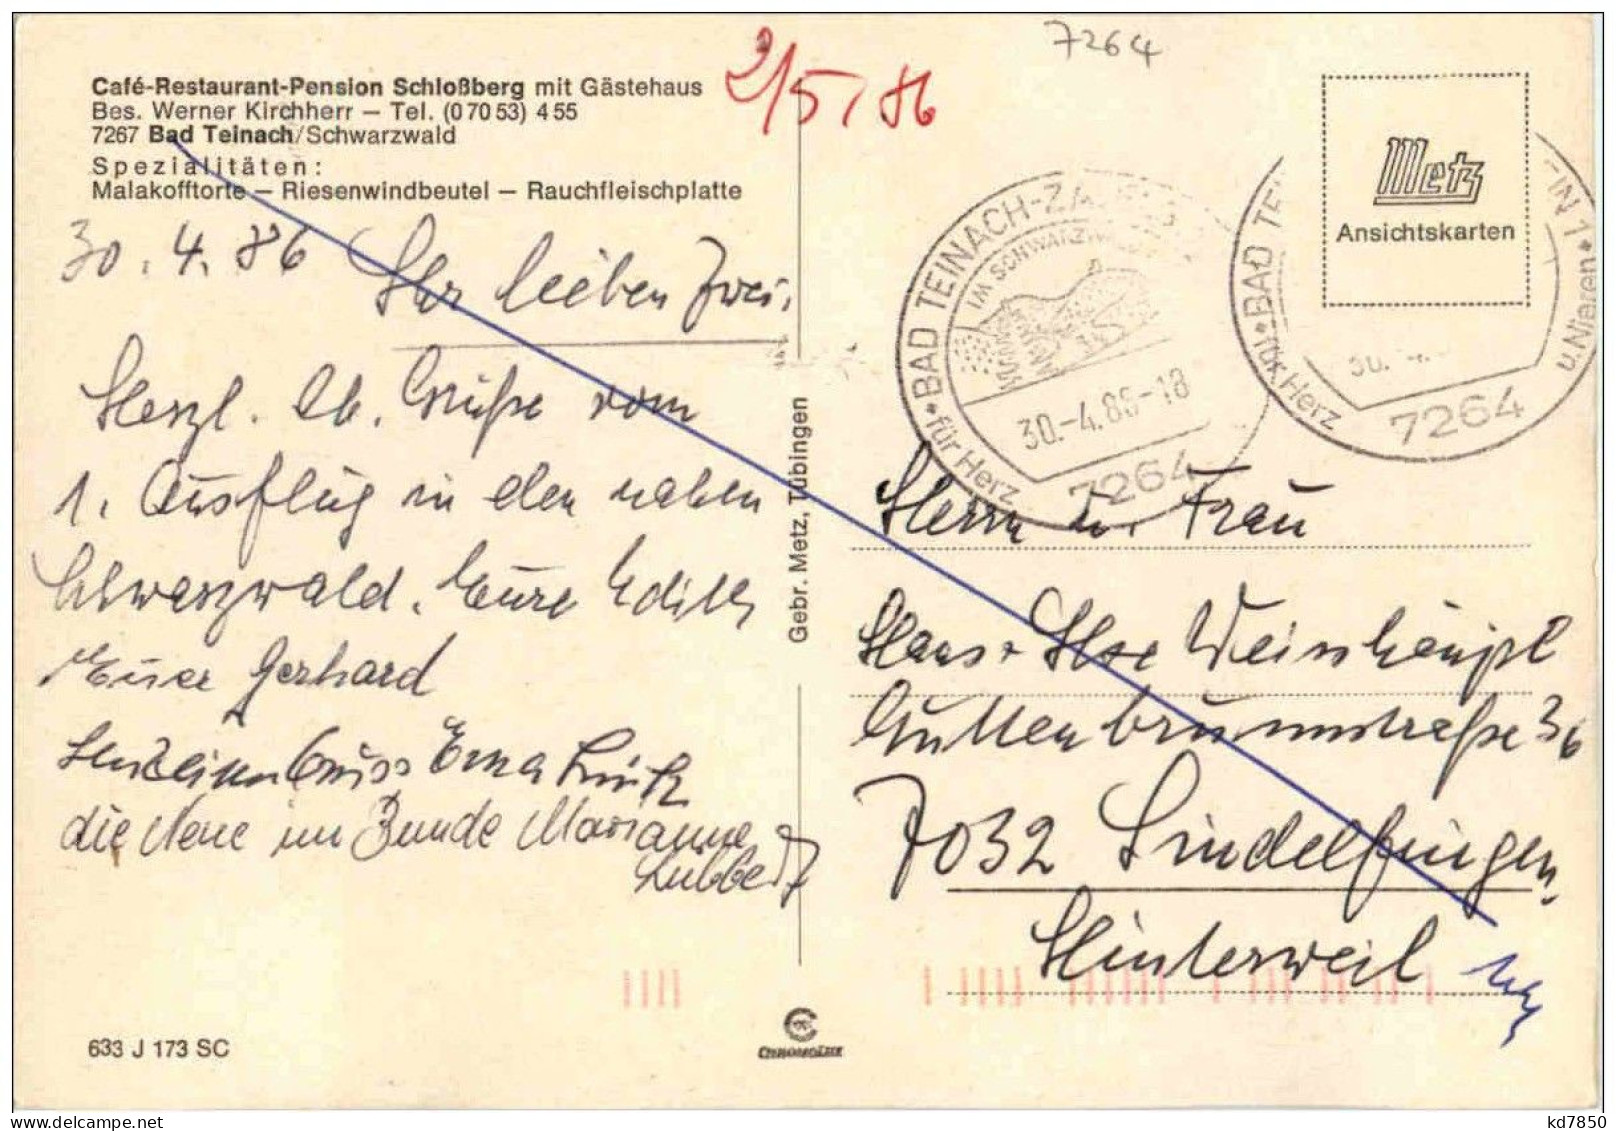 7264
2/5/86
Café-Restaurant-Pension Schloßberg mit Gästehaus
Bes. Werner Kirchherr – Tel. (0 70 53) 4 55
7267 Bad Teinach/Schwarzwald
Spezialitäten:
Malakofftorte – Riesenwindbeutel – Rauchfleischplatte
30.4.86 Ihr lieben Zwei,
Herzl. lb. Grüße vom
1. Ausflug in den nahen
Schwarzwald. Eure Edith
Euer Gerhard
Gruss Erna
die Neue im Bunde Marianne
Metz
Ansichtskarten
BAD TEINACH-ZA
IM SCHWARZW
30.-4.86-18
für Herz
7264
BAD TE
für Herz
u. Nieren
30. -4.
7264
Gebr. Metz, Tübingen
Herrn u. Frau
Hans + Ilse Weinshäupl
Guttenbrunnstraße 36
7032 Sindelfingen,
Hinterweil
633 J 173 SC
CHROMOLUX
kd7850